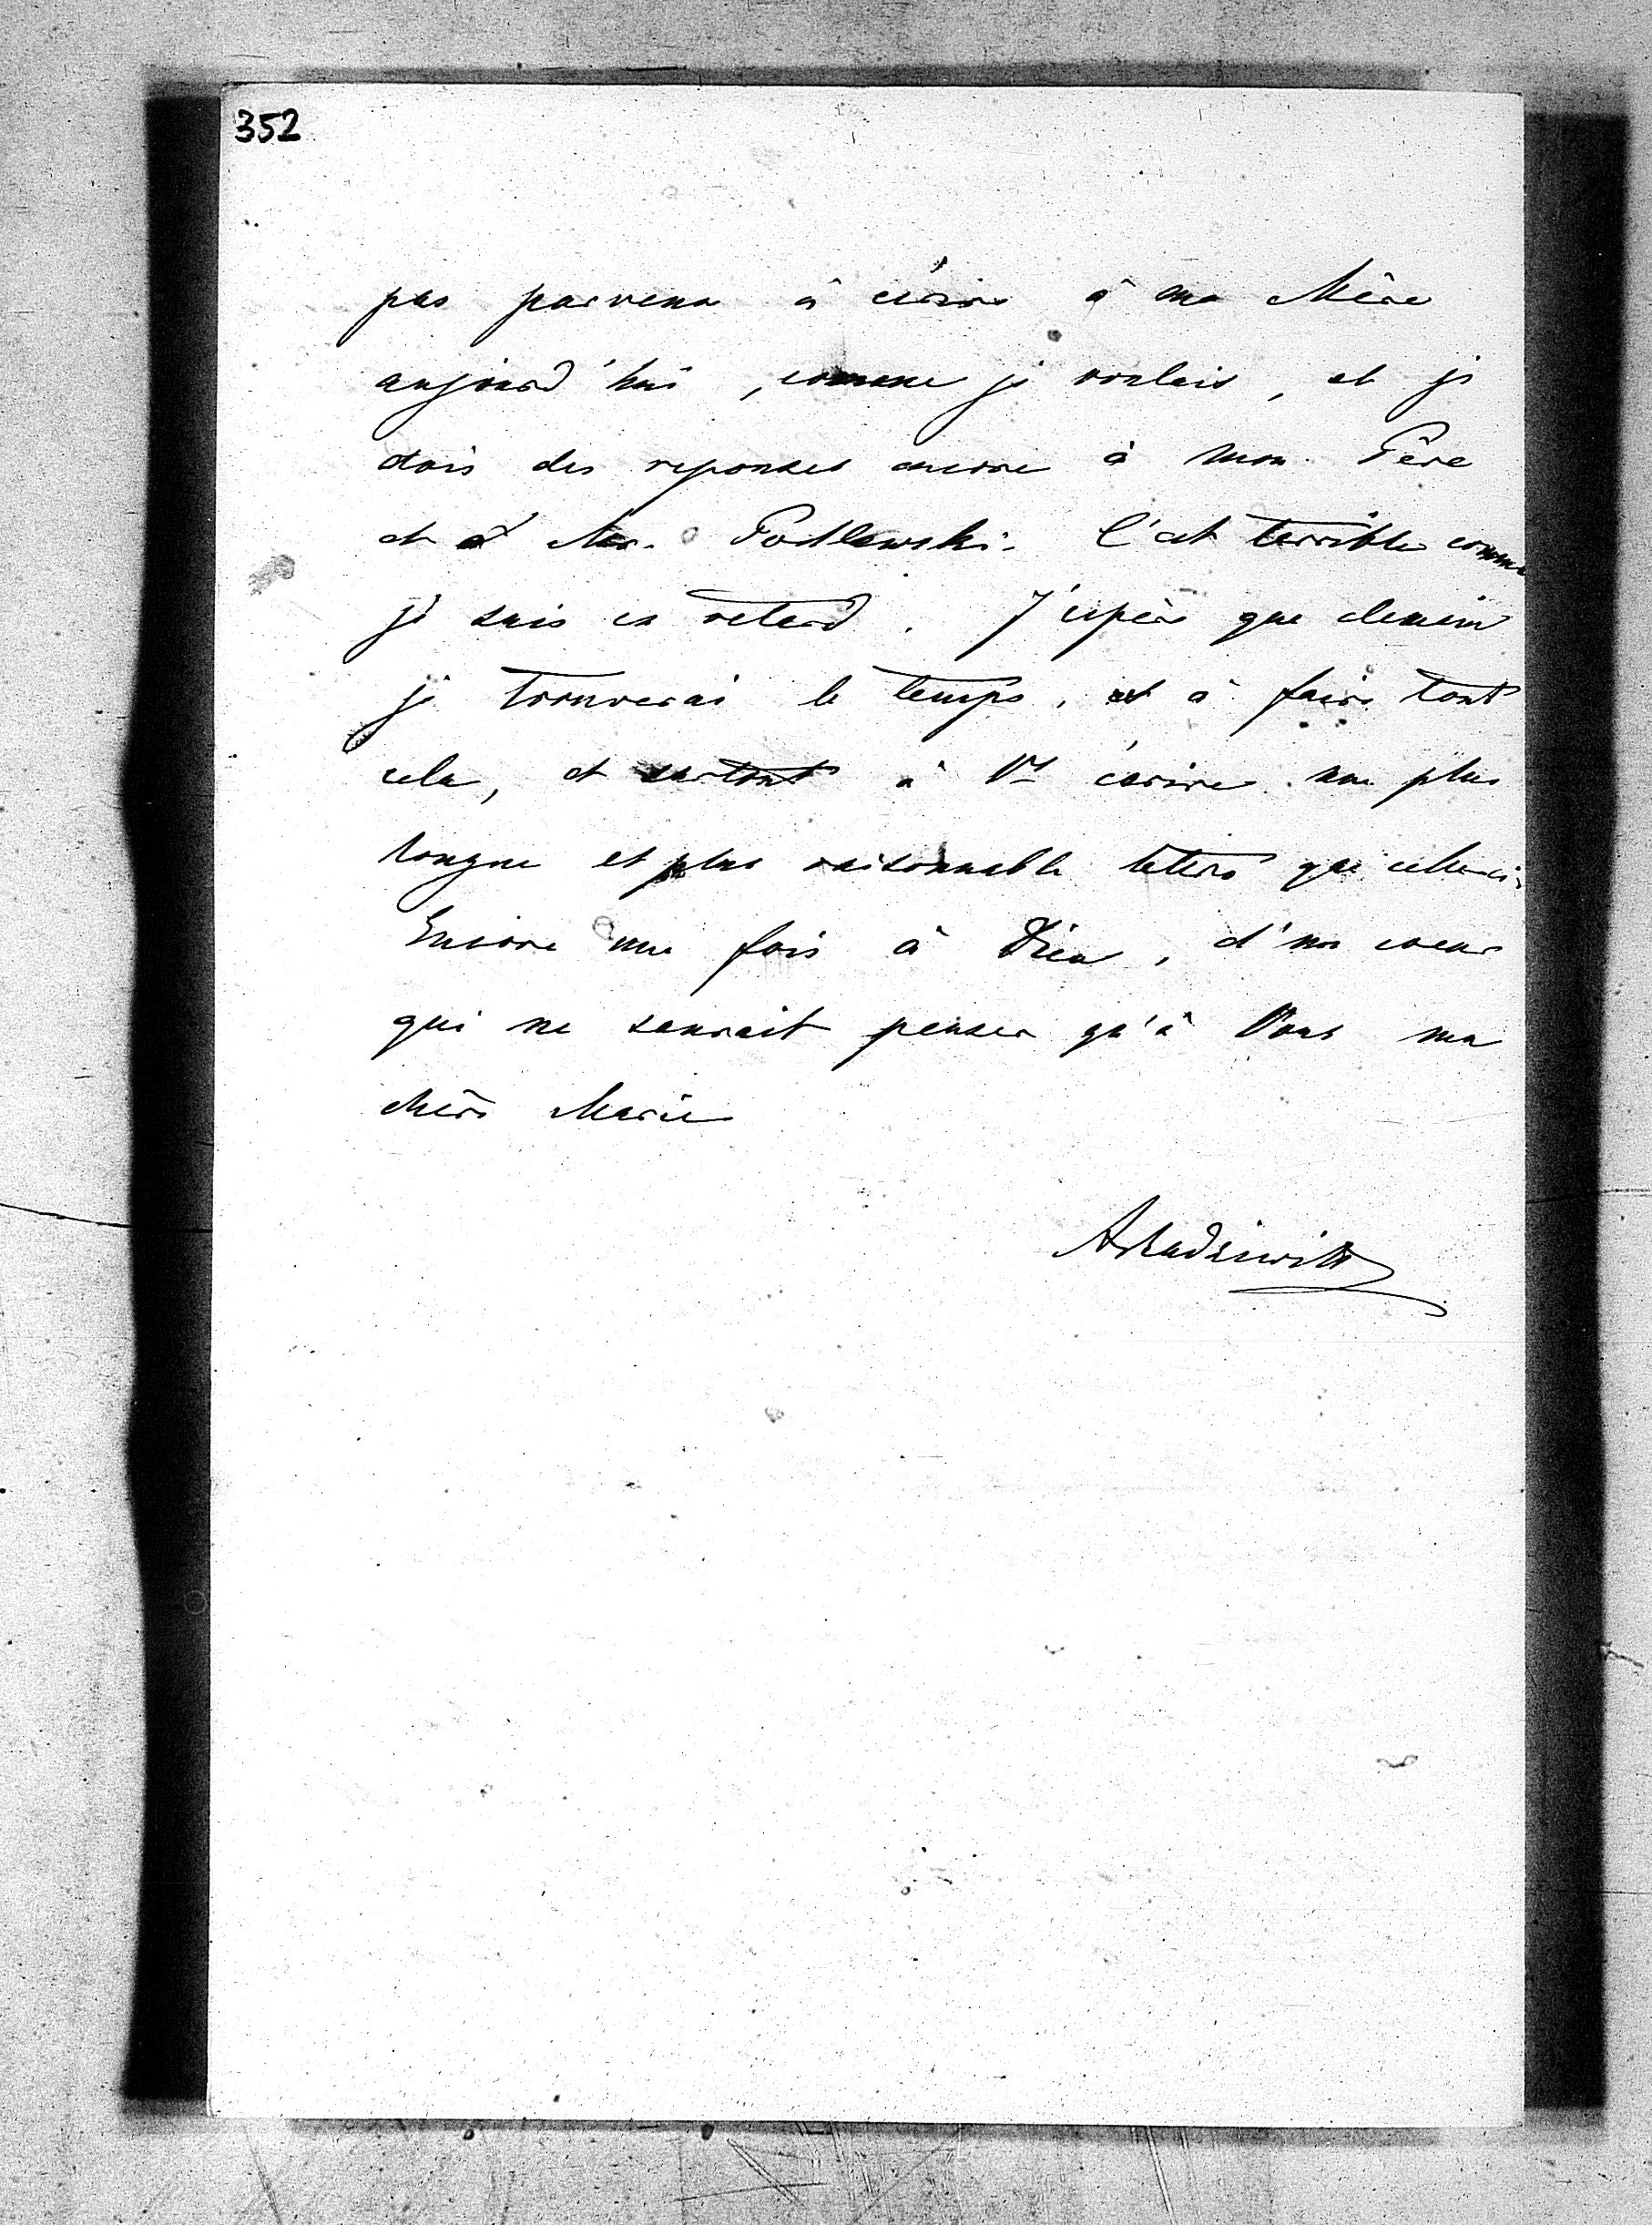 352
pas parvenu à écrire à ma Mère
aujourd'hui, comme je voulais, et je
dois des reponses encore à mon Père
et à Mr. Podlewski. C'est terrible comme
je suis en retard. J'espère que demain
je trouverai le temps, et à faire tout
cela, et surtout à Vs écrire une plus
longue et plus raisonnable lettre que celle-ci.
Encore une fois à Dieu, d'un coeur
qui ne saurait penser qu'à Vous ma
chère Marie
ARadziwiłł